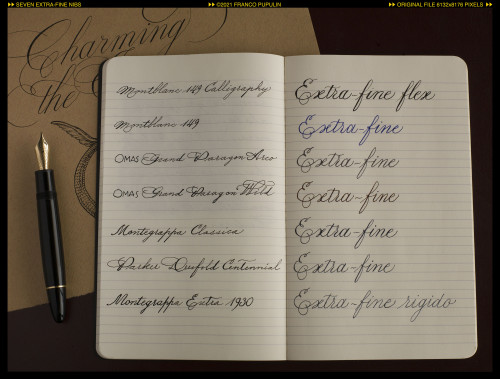 SEVEN EXTRA-FINE NIBS
©2021 FRANCO PUPULIN
ORIGINAL FILE 6132x8176 PIXELS
Charming
the
Montblanc 149 Calligraphy
Montblanc 149
OMAS Grand Paragon Arco
OMAS Grand Paragon Wild
Montegrappa Classica
Parker Duofold Centennial
Montegrappa Extra 1930
Extra-fine flex
Extra-fine
Extra-fine
Extra-fine
Extra-fine
Extra-fine
Extra-fine rigido